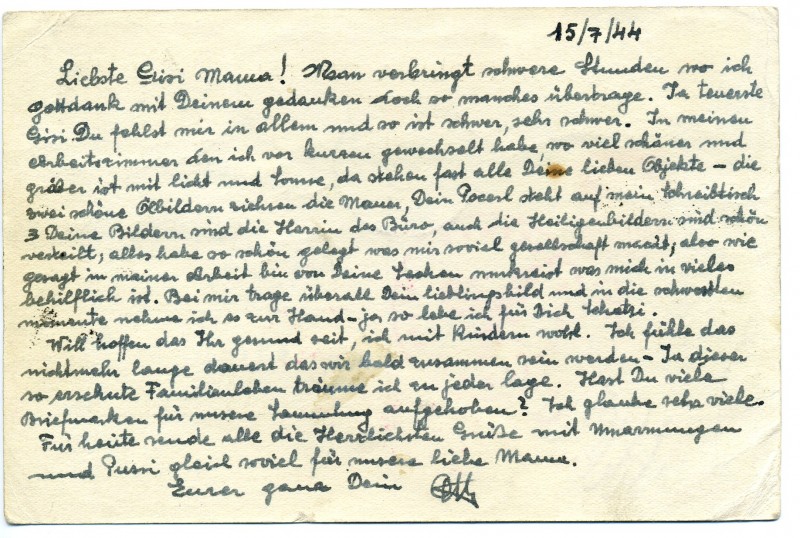 15/7/44
Liebste Gisi Mama! Man verbringt schwere Stunden wo ich
gottdank mit Deinem gedanken doch so manches übertrage. Ja teuerste
Gisi Du fehlst mir in allem und so ist schwer, sehr schwer. In meinen
Arbeitszimmer den ich vor kurzen gewechselt habe, wo viel schöner und
größer ist mit licht und Sonne, da stehen fast alle Deine lieben Objekte – die
zwei schöne Ölbildern ziehren die Mauer, Dein steht auf mein Schreibtisch
3 Deine Bildern sind die Herrin des Büro, auch die Heiligenbildern sind schön
verteilt, alles habe so schön gelegt was mir soviel gesellschaft macht, also wie
gesagt in meiner Arbeit bin von Deine Sachen umkreist was mich in vieles
behilflich ist. Bei mir trage überall Dein lieblingsbild und in die schwersten
momente nehme ich es zur Hand – ja, so lebe ich für Dich Schatzi.
Will hoffen das Ihr gesund seit, ich mit Kindern wohl. Ich fühle das
nichtmehr lange dauert das wir bald zusammen sein werden – Ja dieser
so ersehnte Familienleben träume ich zu jeder lage. Hast Du viele
Briefmarken für unsere Sammlung aufgehoben? Ich glaube sehr viele.
Für heute sende alle die Herrlichsten Grüße mit Umarmungen
und Pussi gleich soviel für unsere liebe Mama.
Eurer ganz Dein Otto